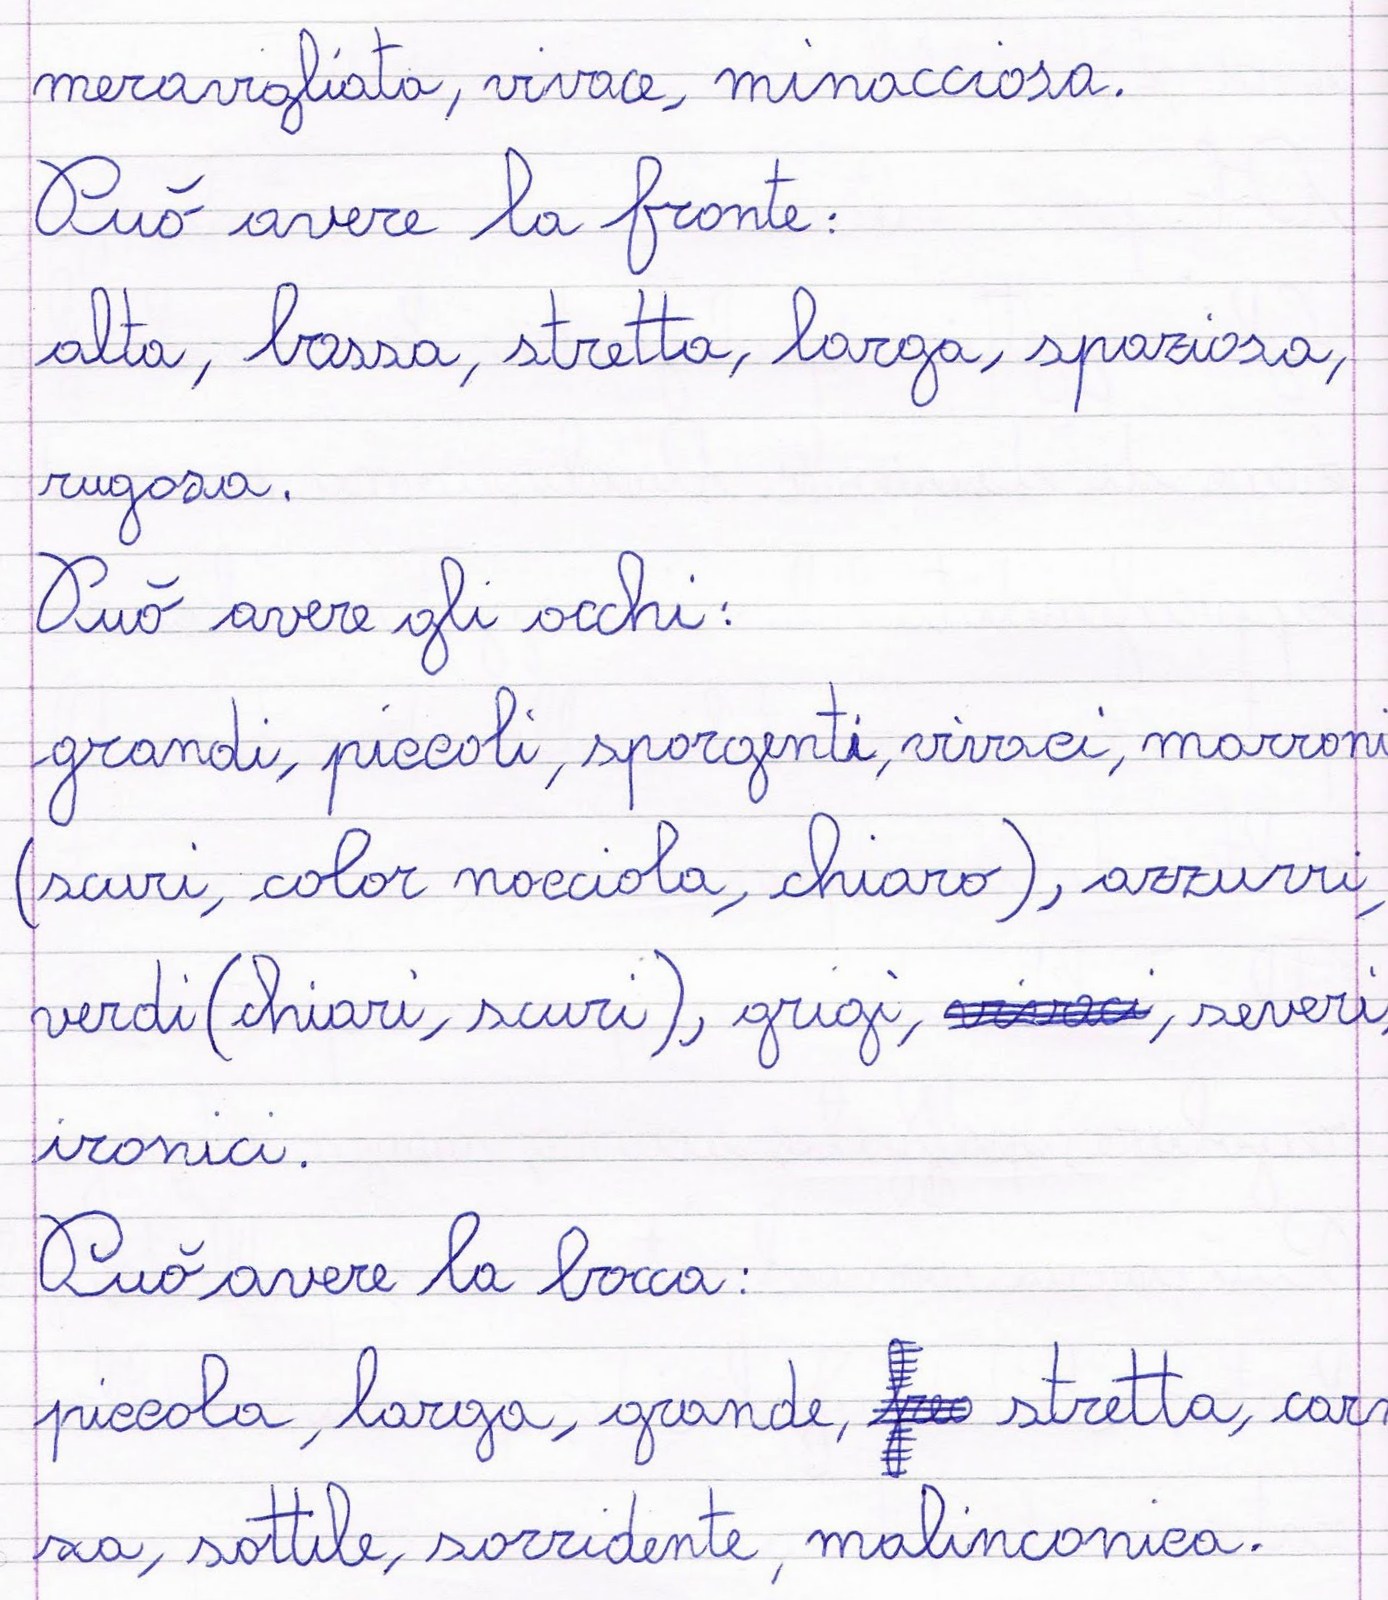 meravigliata, vivace, minacciosa.
Può avere la fronte:
alta, bassa, stretta, larga, spaziosa,
rugosa.
Può avere gli occhi:
grandi, piccoli, sporgenti, vivaci, marroni
(scuri, color nocciola, chiaro), azzurri,
verdi (chiari, scuri), grigi, vivaci, severi,
ironici.
Può avere la bocca:
piccola, larga, grande, stretta, carn
sa, sottile, sorridente, malinconica.